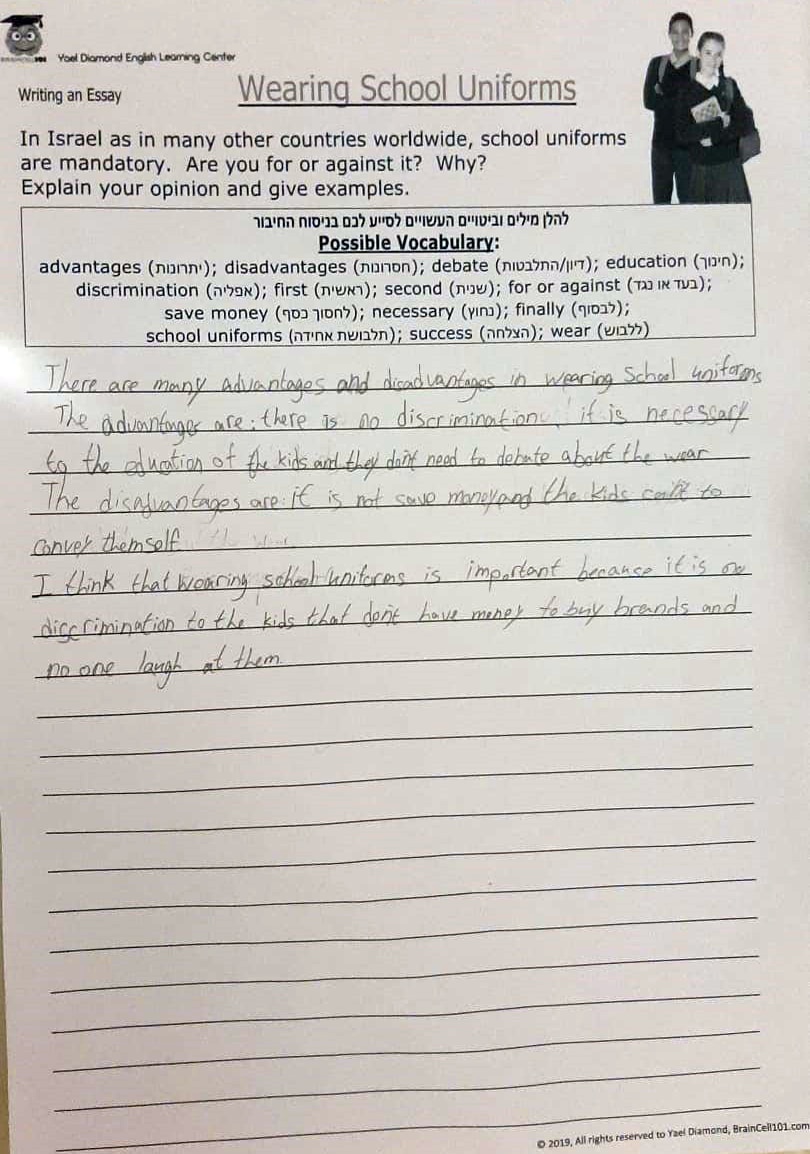 BRAINCELL101 Yael Diamond English Learning Center
Writing an Essay
Wearing School Uniforms
In Israel as in many other countries worldwide, school uniforms
are mandatory. Are you for or against it? Why?
Explain your opinion and give examples.
להלן מילים וביטויים העשויים לסייע לכם בניסוח החיבור
Possible Vocabulary:
advantages (יתרונות); disadvantages (חסרונות); debate (דיון/התלבטות); education (חינוך);
discrimination (אפליה); first (ראשית); second (שנית); for or against (בעד או נגד);
save money (לחסוך כסף); necessary (נחוץ); finally (לבסוף);
school uniforms (תלבושת אחידה); success (הצלחה); wear (ללבוש)
There are many advantages and disadvantages in wearing School uniforms
The advantages are: there is no discrimination, it is necessary
to the education of the kids and they don't need to debate about the wear
The disadvantages are: it is not save money and the kids can't to
convey themself
I think that wearing school uniforms is important because it is no
discrimination to the kids that don't have money to buy brands and
no one laugh at them.
© 2019, All rights reserved to Yael Diamond, BrainCell101.com